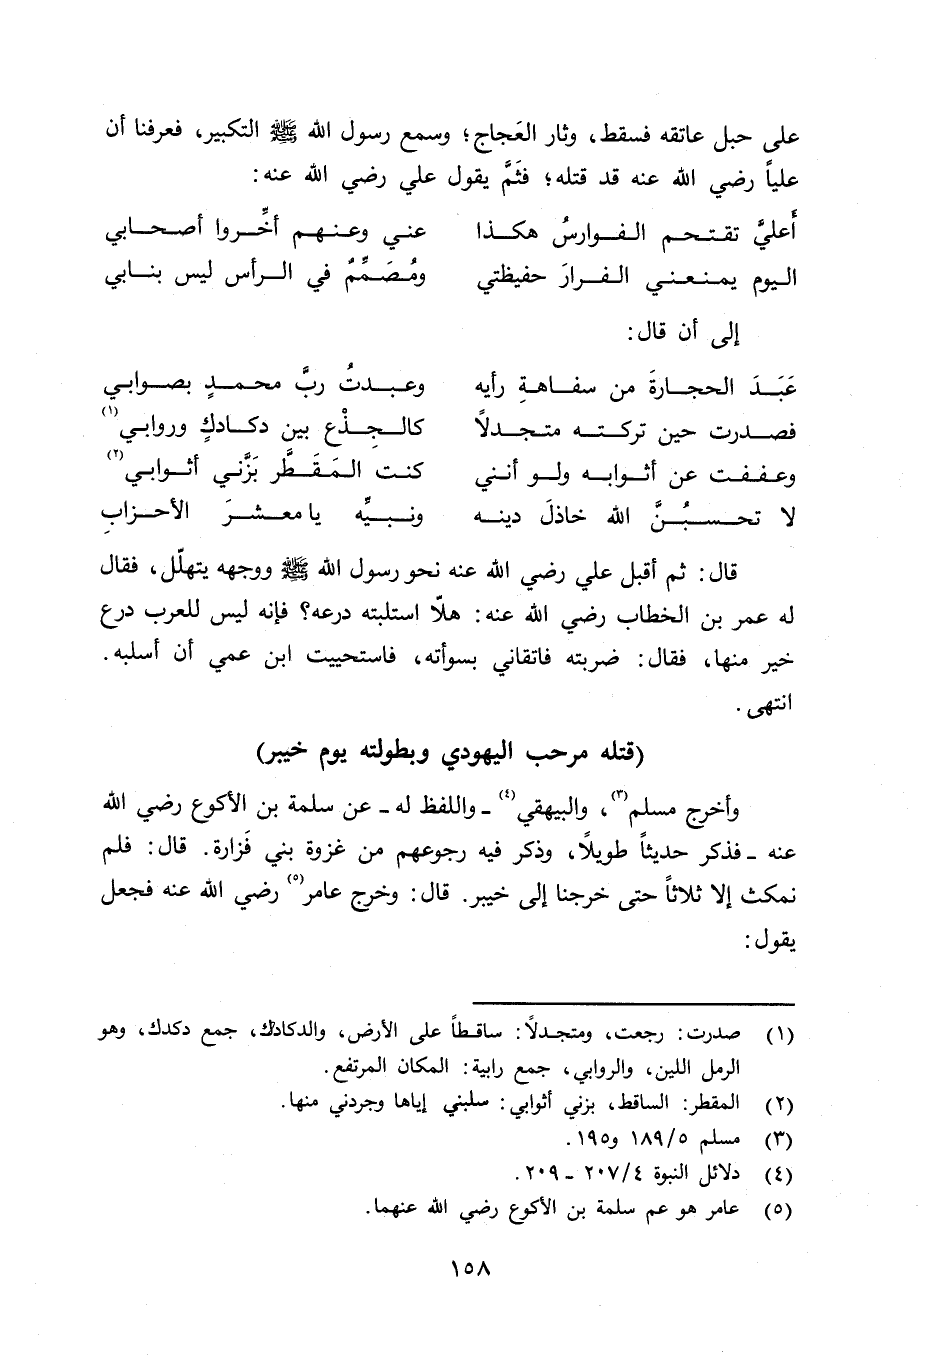 على حبل عاتقه فسقط، وثار العَجاج؛ وسمع رسول الله ﷺ التكبير، فعرفنا أن
علياً رضي الله عنه قد قتله؛ فثَمَّ يقول علي رضي الله عنه:
أَعليَّ تقتحم الفوارسُ هكذا عني وعنهم أخِّروا أصحابي
اليوم يمنعني الفرارَ حفيظتي ومُصَمِّمٌ في الرأس ليس بنابي
إلى أن قال:
عَبَدَ الحجارةَ من سفاهةِ رأيه وعبدتُ ربَّ محمدٍ بصوابي
فصدرت حين تركته متجدلاً كالجذْع بين دكادكٍ وروابي(١)
وعففت عن أثوابه ولو أنني كنت المَقَطَّر بَزَّني أثوابي(٢)
لا تحسبُنَّ الله خاذلَ دينه ونبيِّه يا معشرَ الأحزابِ
قال: ثم أقبل علي رضي الله عنه نحو رسول الله ﷺ ووجهه يتهلّل، فقال
له عمر بن الخطاب رضي الله عنه: هلاّ استلبته درعه؟ فإنه ليس للعرب درع
خير منها، فقال: ضربته فاتقاني بسوأته، فاستحييت ابن عمي أن أسلبه.
انتهى.
(قتله مرحب اليهودي وبطولته يوم خيبر)
وأخرج مسلم(٣)، والبيهقي(٤) ـ واللفظ له ـ عن سلمة بن الأكوع رضي الله
عنه ـ فذكر حديثاً طويلاً، وذكر فيه رجوعهم من غزوة بني فَزارة. قال: فلم
نمكث إلا ثلاثاً حتى خرجنا إلى خيبر. قال: وخرج عامر(٥) رضي الله عنه فجعل
يقول:
(١) صدرت: رجعت، ومتجدلاً: ساقطاً على الأرض، والدكادك، جمع دكدك، وهو
الرمل اللين، والروابي، جمع رابية: المكان المرتفع.
(٢) المقطر: الساقط، بزني أثوابي: سلبني إياها وجردني منها.
(٣) مسلم ١٨٩/٥ و١٩٥.
(٤) دلائل النبوة ٢٠٧/٤ ـ ٢٠٩.
(٥) عامر هو عم سلمة بن الأكوع رضي الله عنهما.
١٥٨